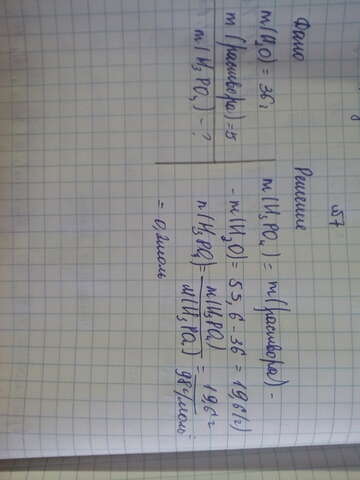 №7
Дано
m(H₂O) = 36г
m(раствора)=5
m(H₃PO₄) - ?
Решение
m(H₃PO₄) = m(раствора) -
- m(H₂O) = 55,6 - 36 = 19,6(г)
n(H₃PO₄) = m(H₃PO₄) / M(H₃PO₄) = 19,6г / 98г/моль =
= 0,2моль